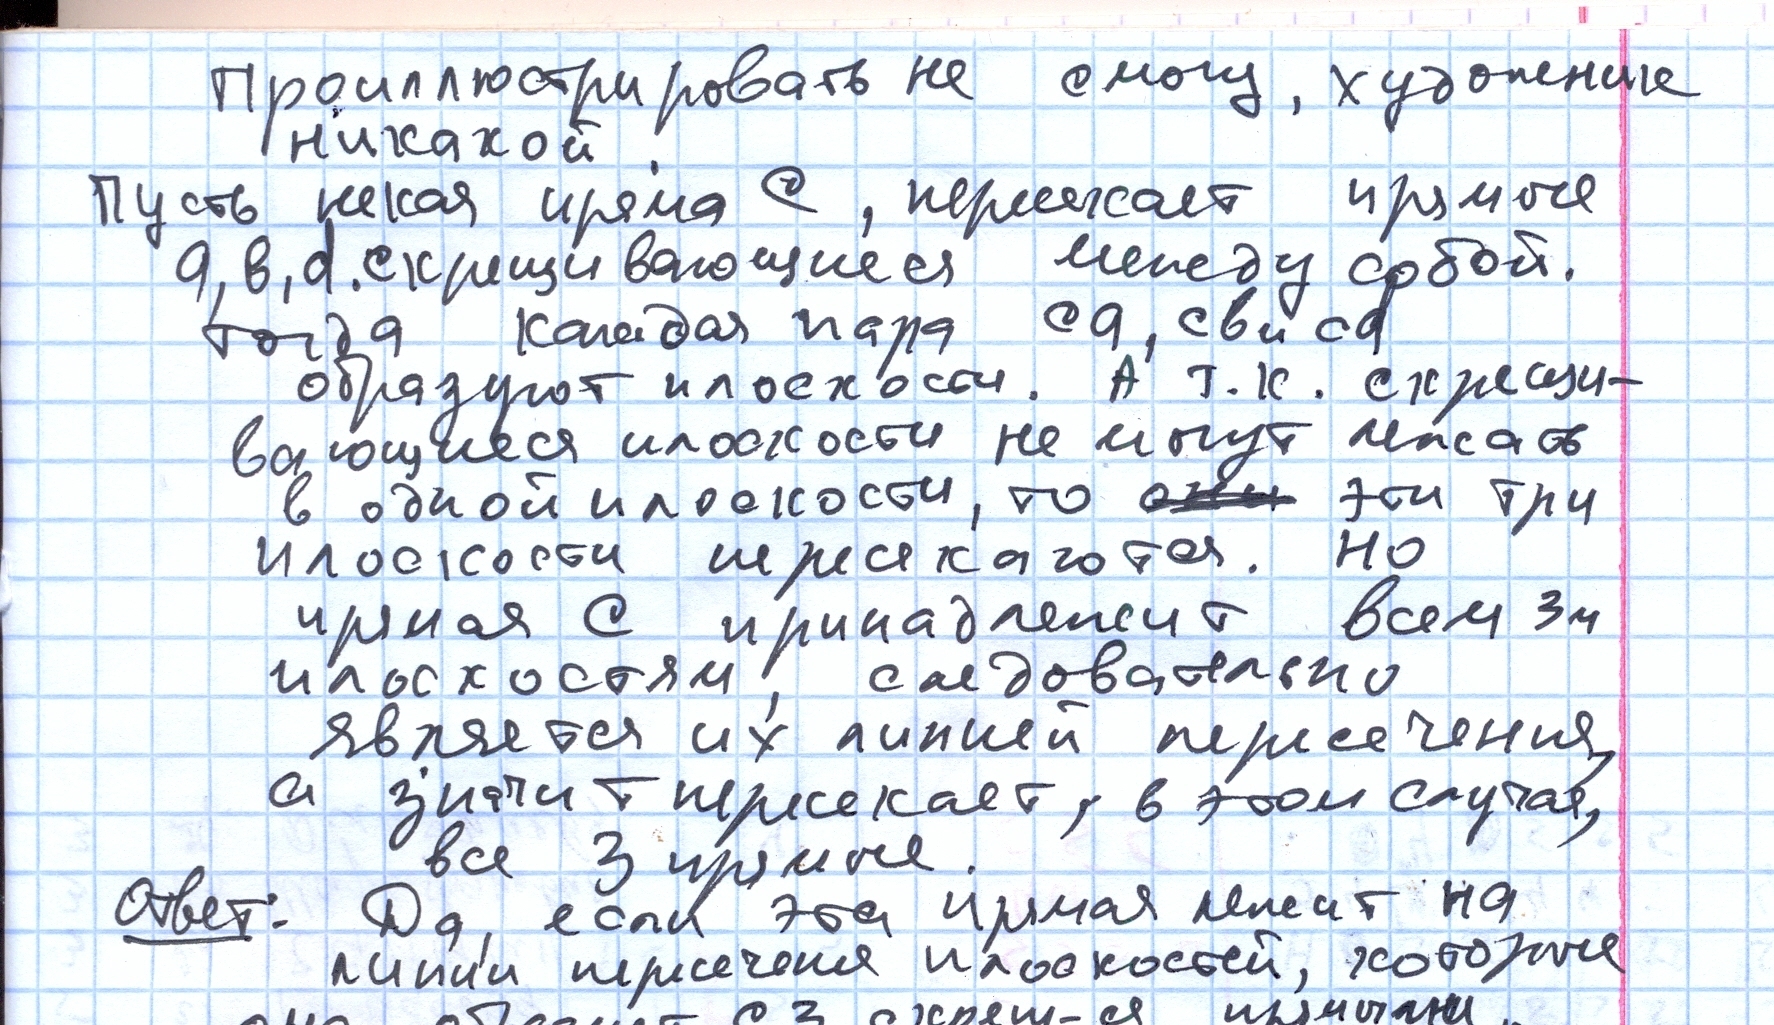 Проиллюстрировать не смогу, художник
никакой.
Пусть некая пряма С, пересекает прямые
а, в, d. скрещивающиеся между собой.
Тогда каждая пара са, св и cd
образуют плоскости. А т.к. скрещи-
вающиеся плоскости не могут лежать
в одной плоскости, то эти три
плоскости пересекаются. Но
прямая С принадлежит всем 3м
плоскостям, следовательно
является их линией пересечения,
а значит пересекает, в этом случае,
все 3 прямые.
Ответ: Да, если эта прямая лежит на
линии пересечения плоскостей, которые
она образует с 3 скрещ-ся прямыми.